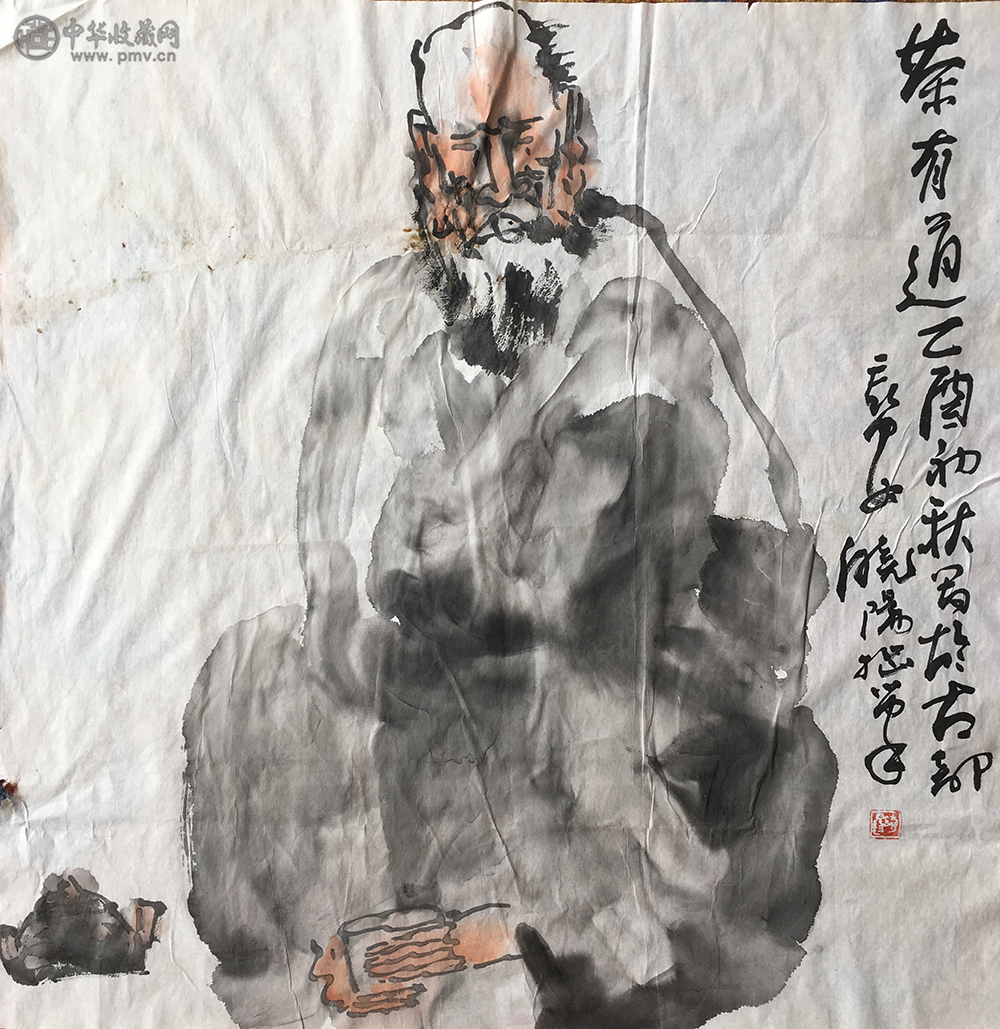 中华收藏网
www.pmv.cn
茶有道乙酉初秋写於古都
曉陽拙筆